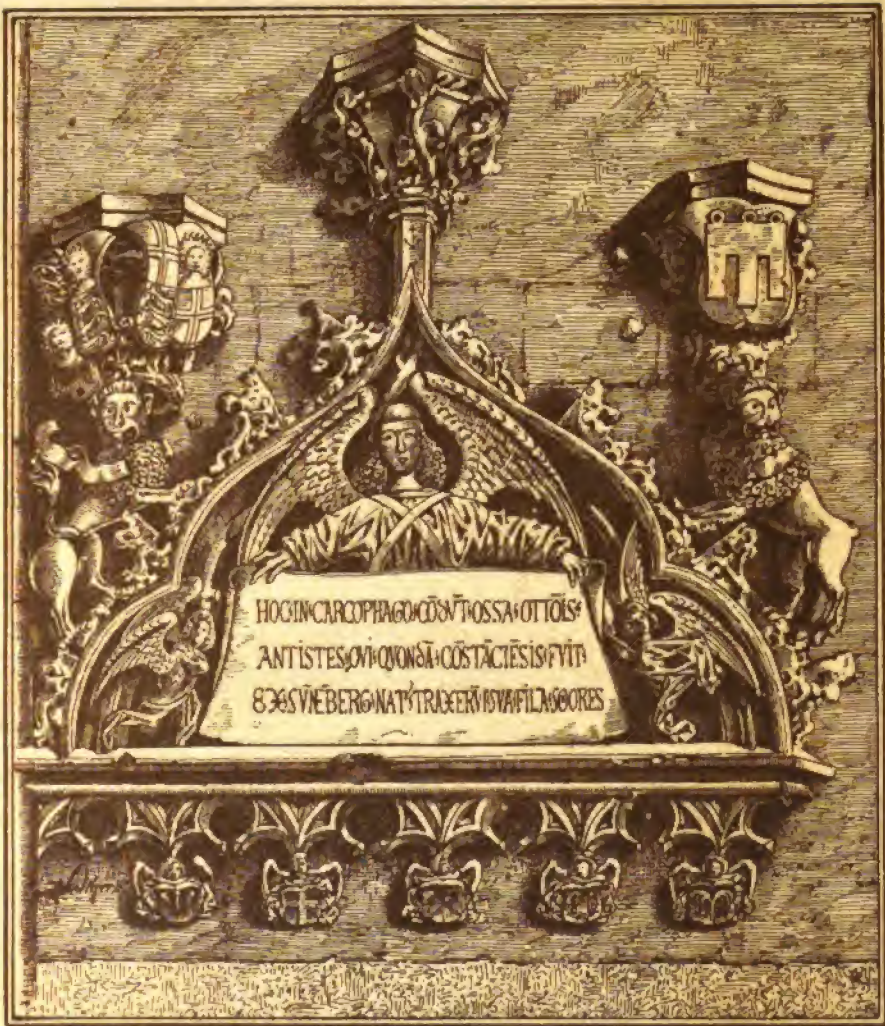 HOC·IN·CARCOPHAGO·CŌDV̄T·OSSA·OTTŌIS·
ANTISTES·QVI·QVONDĀ·CŌSTĀCIĒSIS·FVIT·
SVN̄EBERG·NAT'·TRAXERV̄T·SVA·FILA·SORORES